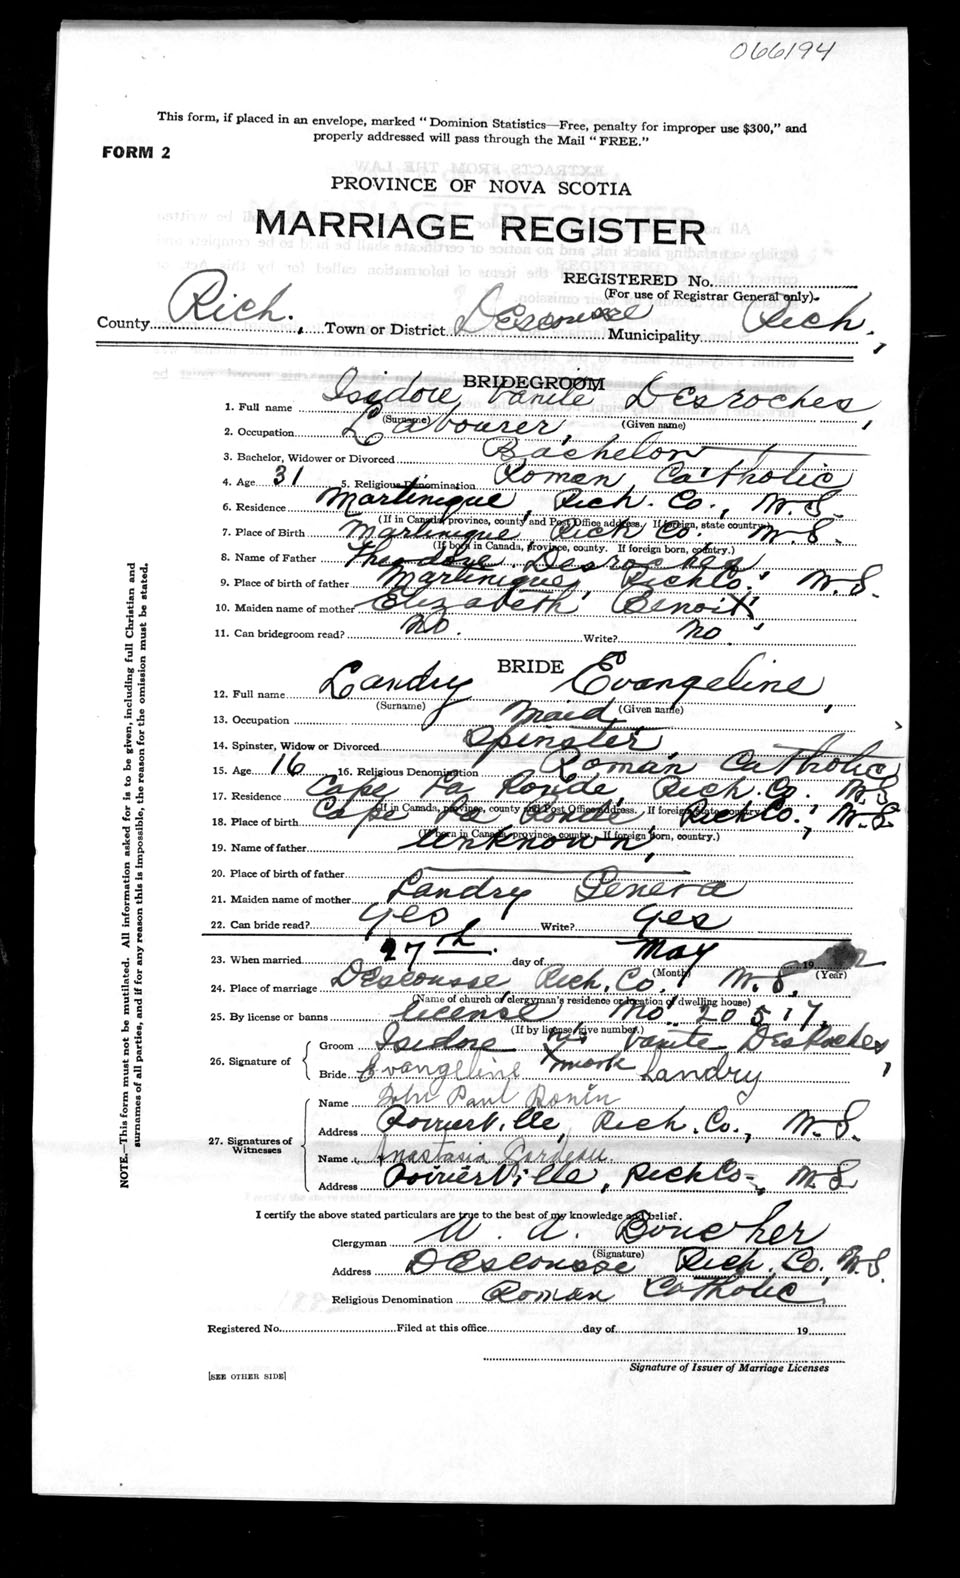 066194
This form, if placed in an envelope, marked "Dominion Statistics—Free, penalty for improper use $300," and
properly addressed will pass through the Mail "FREE."
FORM 2
PROVINCE OF NOVA SCOTIA
MARRIAGE REGISTER
REGISTERED No.
(For use of Registrar General only)
County Rich. Town or District Descousse Municipality Rich,
BRIDEGROOM
1. Full name Isidore Vanite Desroches,
(Surname) (Given name)
2. Occupation Labourer,
3. Bachelor, Widower or Divorced Bachelor
4. Age 31 5. Religious Denomination Roman Catholic
6. Residence Martinique, Rich. Co., N.S.
(If in Canada, province, county and Post Office address. If foreign, state country)
7. Place of Birth Martinque Rich Co. N.S.
(If born in Canada, province, county. If foreign born, country.)
8. Name of Father Theodore Desroches
9. Place of birth of father Martinique, Rich Co. N.S.
10. Maiden name of mother Elizabeth Benoit,
11. Can bridegroom read? No. Write? No
BRIDE
12. Full name Landry Evangeline,
(Surname) (Given name)
13. Occupation Maid,
14. Spinster, Widow or Divorced Spinster,
15. Age 16 16. Religious Denomination Roman Catholic
17. Residence Cape La Ronde, Rich. Co. N.S.
(If in Canada, province, county and Post Office address. If foreign state country)
18. Place of birth Cape La Ronde, Rich Co., N.S.
(If born in Canada, province, county. If foreign born, country.)
19. Name of father Unknown,
20. Place of birth of father
21. Maiden name of mother Landry Genera
22. Can bride read? Yes Write? Yes
23. When married 27th. day of May 19
(Month) (Year)
24. Place of marriage Descousse Rich. Co. N.S.
(Name of church or clergyman's residence or location of dwelling house)
25. By license or banns license No. 20517,
(If by license give number.)
26. Signature of
Groom Isidore his Vanite DesRoches,
Bride Evangeline X mark Landry
27. Signatures of
Witnesses
Name John Paul
Address Poirierville, Rich. Co., N.S.
Name Anastasia
Address Poirierville, Rich Co., N.S.
I certify the above stated particulars are true to the best of my knowledge and belief.
Clergyman A. A. Boucher
(Signature)
Address Descousse Rich. Co., N.S.
Religious Denomination Roman Catholic,
Registered No. Filed at this office day of 19
Signature of Issuer of Marriage Licenses
[SEE OTHER SIDE]
NOTE.—This form must not be mutilated. All information asked for is to be given, including full Christian and
surnames of all parties, and if for any reason this is impossible, the reason for the omission must be stated.